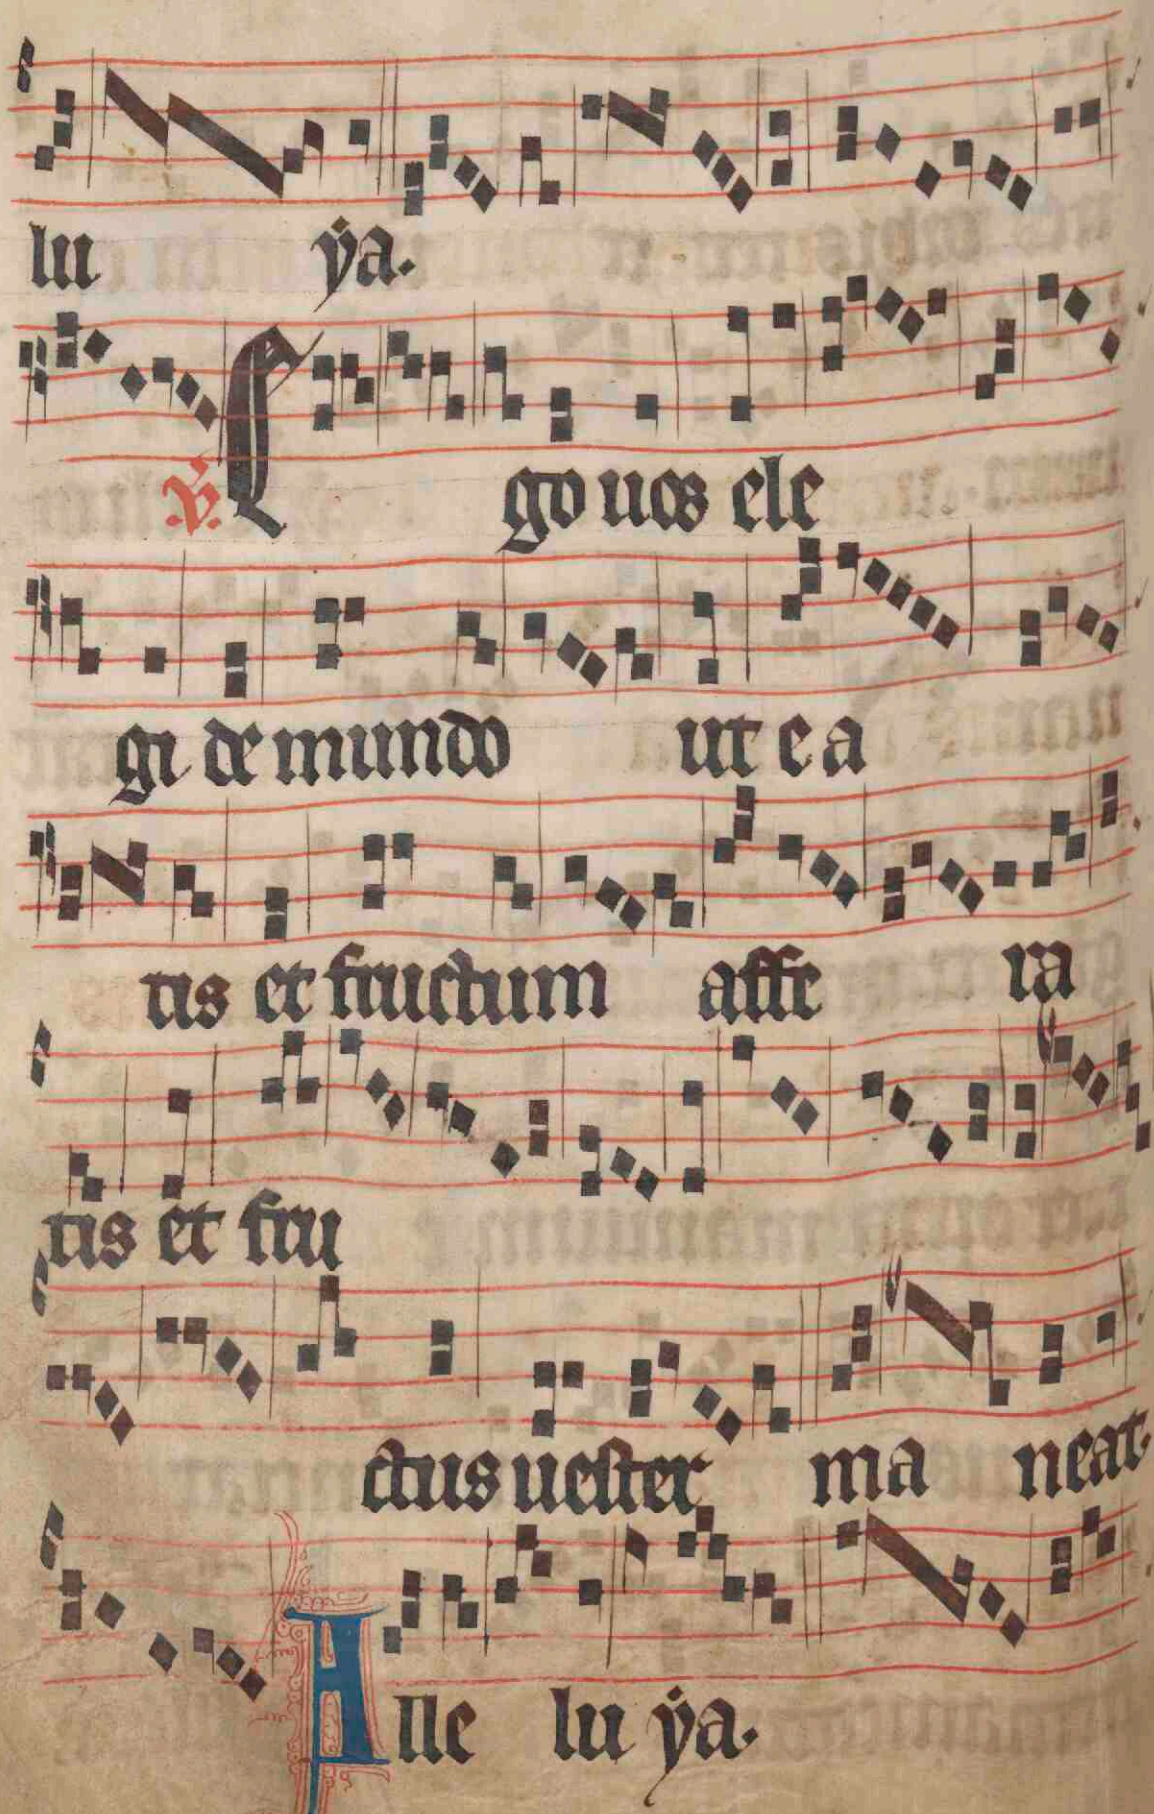 lu ẏa.
v̇. Ego uos ele
gi de mundo ut e a
tis et fructum affe ra
tis et fru
ctus uester ma neat.
Alle lu ẏa.